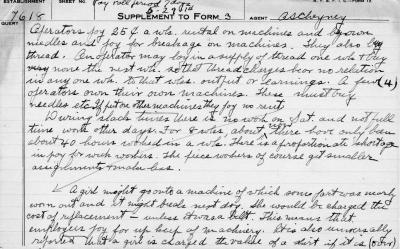 Pay roll period
7618
SUPPLEMENT TO FORM 3 AGENT
Operators pay 25¢ a wk. rental on machines and buy own
needles and pay for breakage on machines. They also buy
thread. An operator may lay in a supply of thread one wk & buy
none the next wk. so that thread charges bear no relation
in any one wk. to that wks. output or earnings. A few (4)
operators own their own machines. These must buy
needles etc. if put on other machines they pay no rent.
During slack times there is no work on Sat. and not full
time work other days. For 8 wks, about, now there have only been
about 40 hours worked in a wk. There is a proportionate shortage
in pay for week workers. The piece workers of course get smaller
assignments & make less.
A girl might go onto a machine of which some part was nearly
worn out and it might break next day. She would be charged the
cost of replacement - unless it was a belt. This means that
employees pay for up keep of machinery. It is also universally
reported that a girl is charged the value of a shirt if it is (over)